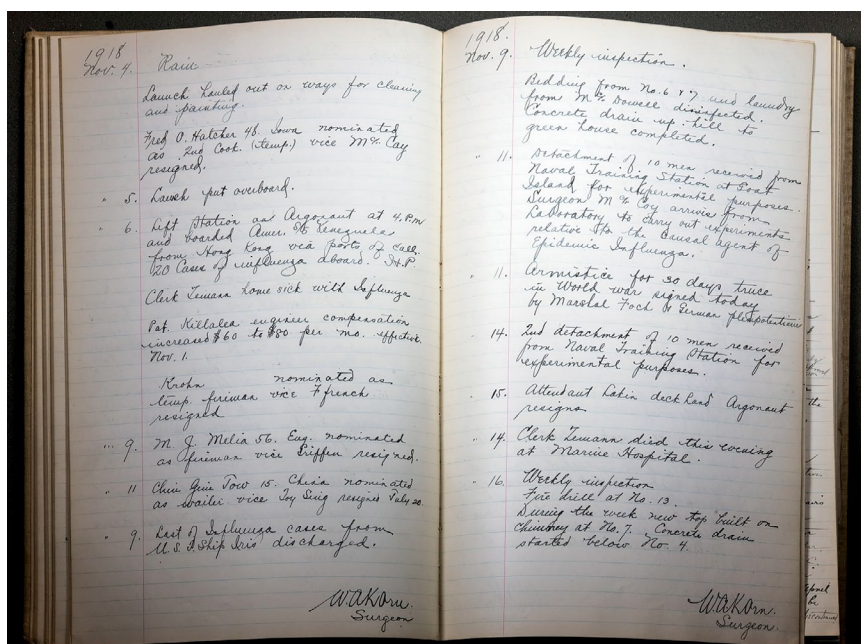 1918
Nov. 4. Rain
Launch hauled out on ways for cleaning
and painting.
Fred O. Hatcher 48. Iowa nominated
as 2nd Cook. (temp.) vice McCay
resigned.
" 5. Launch put overboard.
" 6. Left Station on Argonaut at 4. P.M
and boarded Amer. S/S Venezuela
from Hong Kong via ports of call.
20 Cases of influenza aboard.
Clerk Zemann home sick with Influenza
Pat. Killalea engineer compensation
increased $60 to $80 per mo. effective
Nov. 1.
Krohn nominated as
temp. fireman vice Ffrench
resigned
" 9. M. J. Melia 56. Eng. nominated
as fireman vice Griffen resigned.
" 11 Chin Gin Tow 15. China nominated
as waiter vice Joy Sing resigned July 20.
" 9. Last of Influenza cases from
U.S. Ship Iris discharged.
W.A. Korn.
Surgeon.
1918.
Nov. 9. Weekly inspection.
Bedding from No. 6 & 7 and laundry
from McDowell disinfected.
Concrete drain up hill to
green house completed.
" 11. Detachment of 10 men received from
Naval Training Station at Goat
Island for experimental purposes.
Surgeon McCoy arrives from
Laboratory to carry out experiments
relative to the causal agent of
Epidemic Influenza.
" 11. Armistice for 30 days truce
in World war signed today
by Marshal Foch & German
14. 2nd detachment of 10 men received
from Naval Training Station for
experimental purposes.
" 15. Attendant Lakin deck hand Argonaut
resigns.
" 14. Clerk Zemann died this evening
at Marine Hospital.
" 16. Weekly inspection
Fire drill at No. 13.
During the week new top built on
chimney at No. 7. Concrete drain
started below No. 4.
W.A. Korn.
Surgeon.